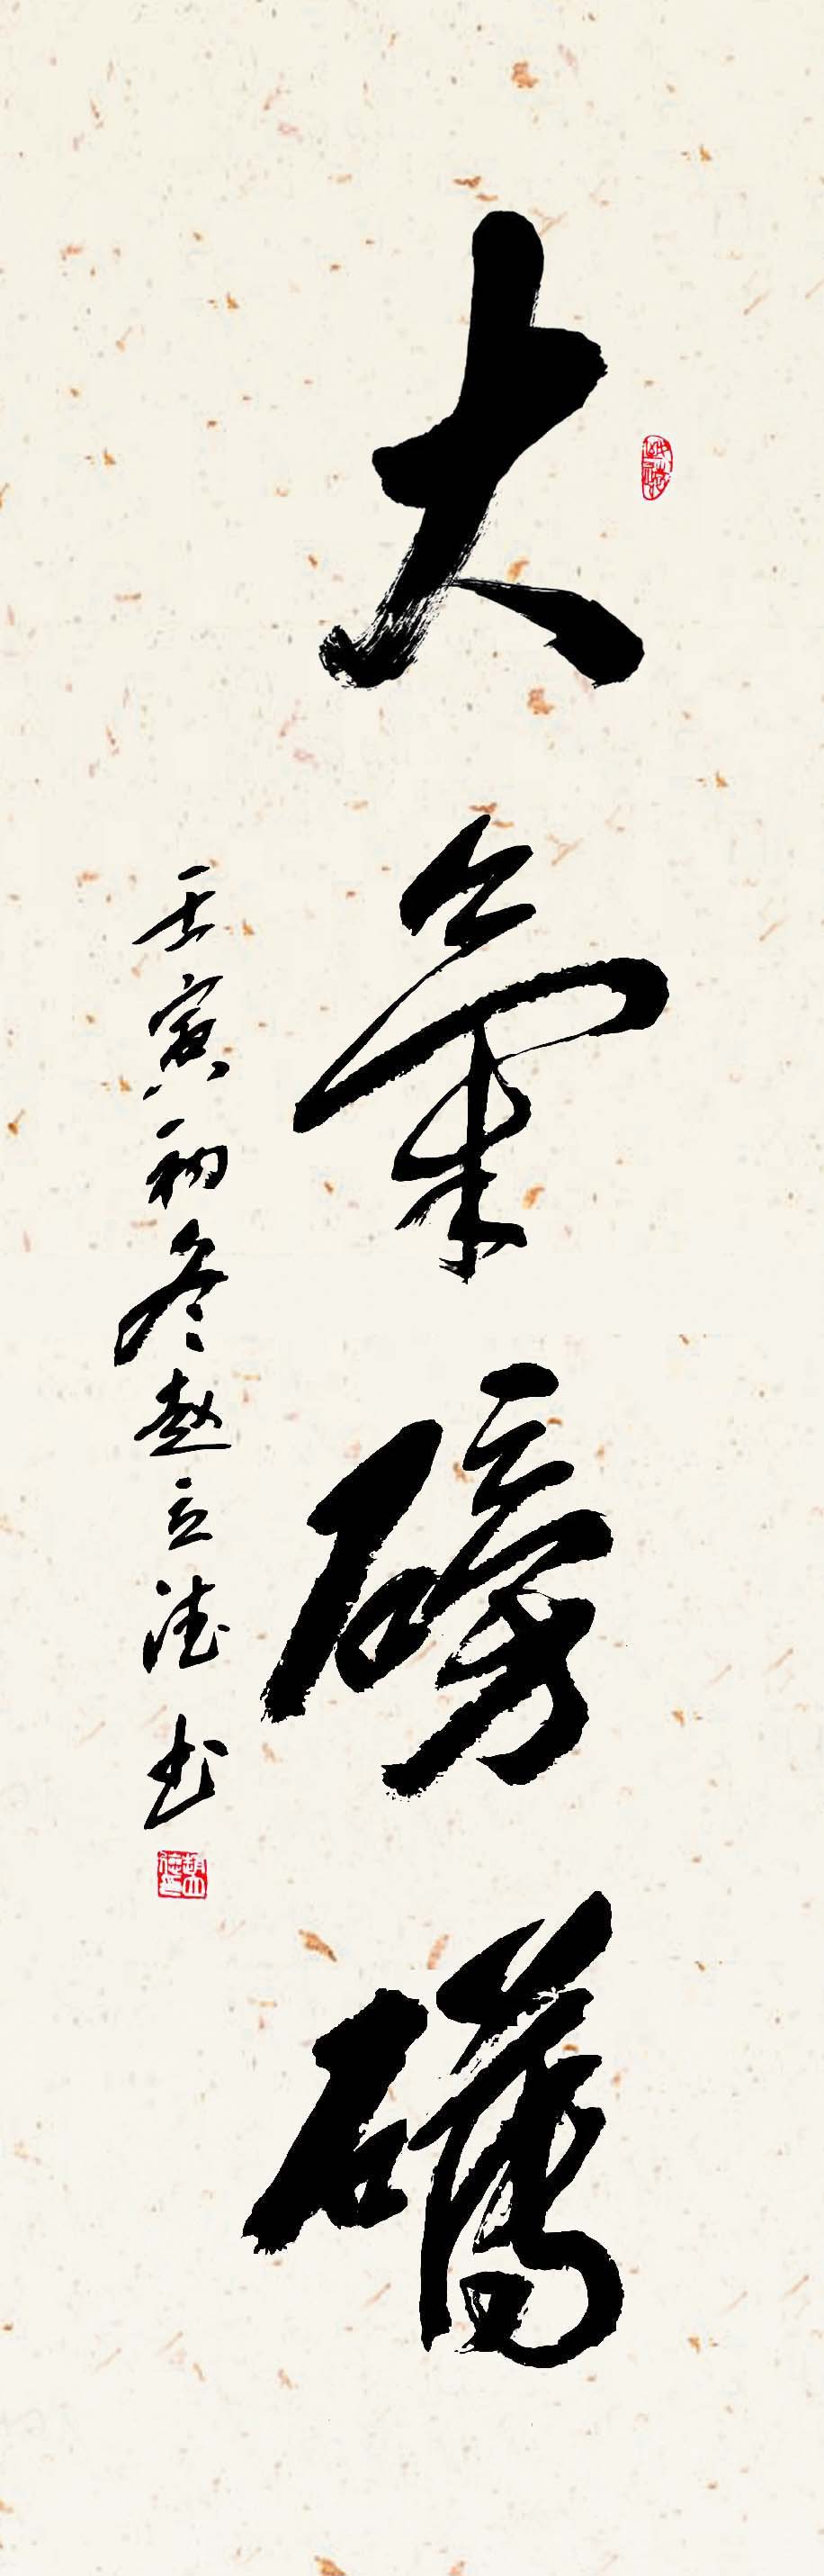 大氣磅礴
壬寅初冬赵立德书